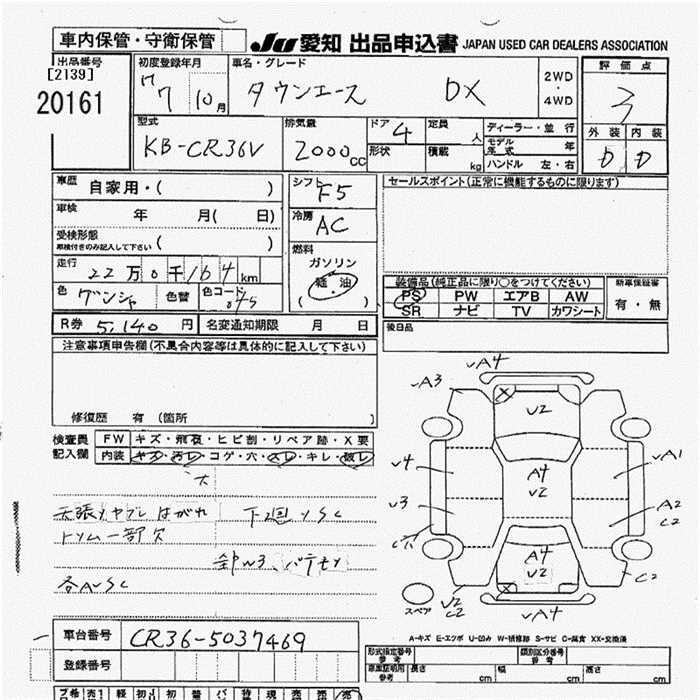 車内保管・守衛保管
JU 愛知 出品申込書 JAPAN USED CAR DEALERS ASSOCIATION
出品番号
[2139]
20161
初度登録年月
7 10 月
車名・グレード
タウンエース DX
2WD
・
4WD
評価点
3
型式
KB-CR36V
排気量
2000 CC
ドア 4
形状
定員 人
積載 kg
ディーラー・並 行
モデル年式 年
ハンドル 左・右
外装 内装
D D
車歴 自家用・( )
車検 年 月( 日)
受検形態
車検付きのみ記入して下さい ( )
走行 22万0千164km
色 グンジャ 色替 色コード
シフト F5
冷房 AC
燃料
ガソリン
軽・油
セールスポイント(正常に機能するものに限ります)
装備品(純正品に限り○をつけてください)
PS PW エアB AW
SR ナビ TV カワシート
新車保証書
有・無
R券 5,140 円 名変通知期限 月 日
後日品
注意事項申告欄(不具合内容等は具体的に記入して下さい)
修復歴 有 (箇所 )
検査員
記入欄
FW キズ・飛夜・ヒビ割・リペア跡・X要
内装 キズ・汚レ・コゲ・穴・スレ・キレ・破レ
大
天張りヤブレ はがれ 下廻りSC
トリム一部欠
各A〜SC
A3
A4
U2
U4
A4
U2
A1
U3
A2
C2
A4
U2
C2
スペア
U2
C2
A4
A-キズ E-エクボ U-凹み W-補修跡 S-サビ C-腐食 XX-交換済
車台番号 CR36-5037469
登録番号
形式指定番号
参考
類別区分番号
参考
車庫証明用
参考
長さ cm 幅 cm 高さ cm